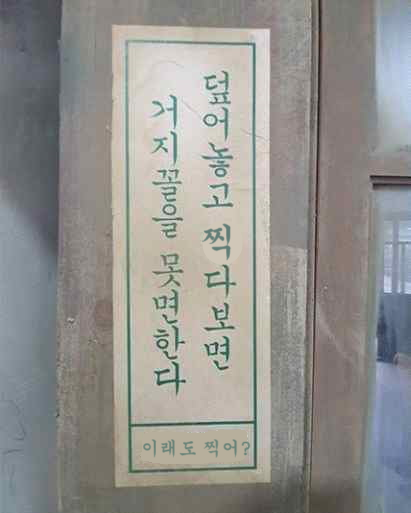 덮어놓고 찍다보면
거지꼴을 못면한다
이래도 찍어?